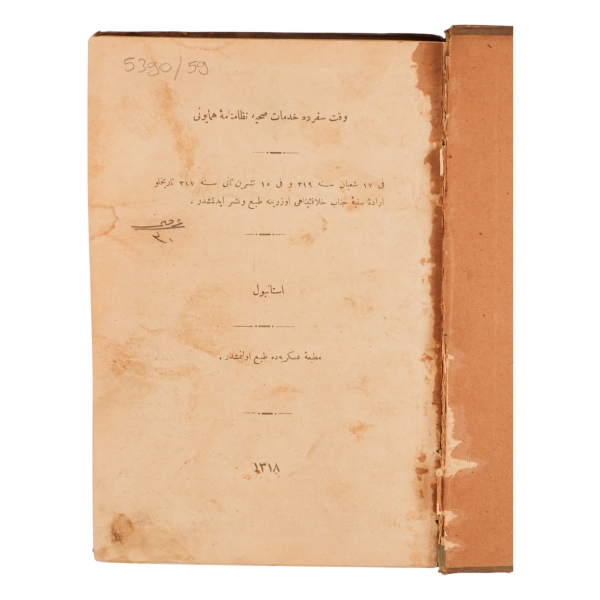 5390/59
وقت سفرده خدمات صحیه نظامنامهٔ همایونی
فی ١٧ شعبان سنه ٣١٩ و فی ١٥ تشرین ثانی سنه ٣١٧ تاریخلو
ارادهٔ سنیهٔ جناب خلافتپناهی اوزرینه طبع ونشر ایدلمشدر .
٣٠
استانبول
مطبعهٔ عسکریه‌ده طبع اولنمشدر .
١٣١٨